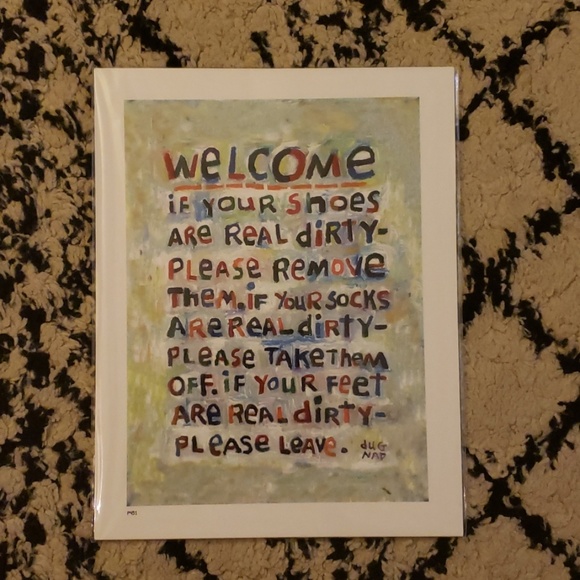 WELCOME
iF YOUR SHOES
ARE REAL diRTY-
PLEASE REMOVE
THEM. iF YOUR SOCKS
ARE REAL diRTY-
PLEASE TAKE THEM
OFF. iF YOUR FEET
ARE REAL diRTY-
PLEASE LEAVE.
dUG
NAP